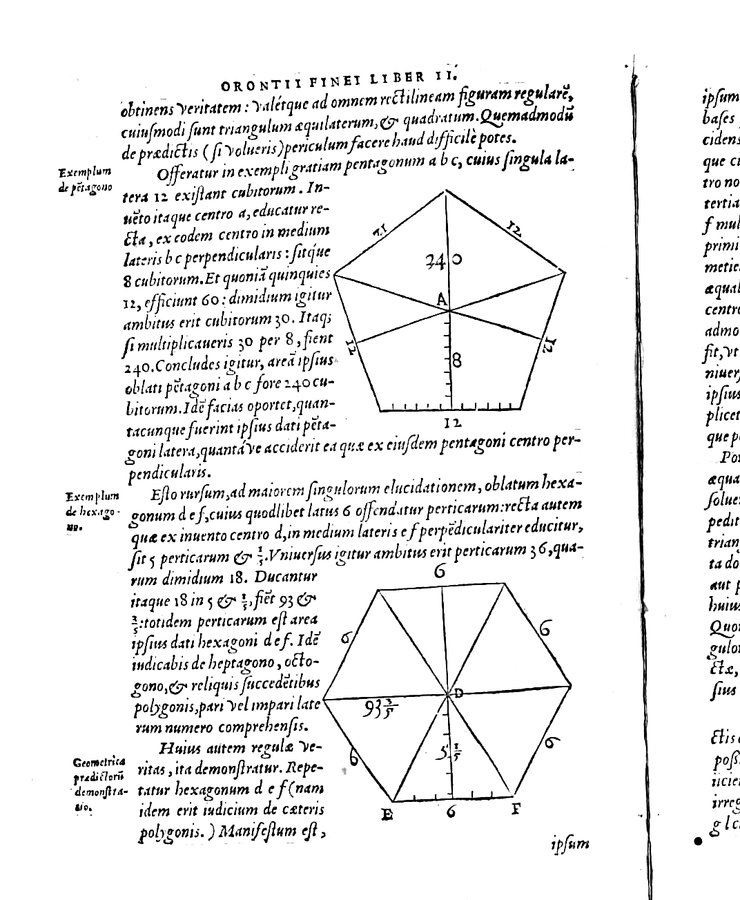 ORONTII FINEI LIBER II.
obtinens veritatem: valétque ad omnem rectilineam figuram regularẽ,
cuiusmodi sunt triangulum æquilaterum, & quadratum. Quemadmodũ
de prædictis (si volueris) periculum facere haud difficile potes.
Exemplum
de pẽtagono
Offeratur in exempli gratiam pentagonum a b c, cuius singula la-
tera 12 existant cubitorum. In-
uẽto itaque centro a, educatur re-
cta, ex eodem centro in medium
lateris b c perpendicularis: sitq́ue
8 cubitorum. Et quoniã quinquies
12, efficiunt 60: dimidium igitur
ambitus erit cubitorum 30. Itaq;
si multiplicaueris 30 per 8, fient
240. Concludes igitur, areã ipsius
oblati pẽtagoni a b c fore 240 cu-
bitorum. Idẽ facias oportet, quan-
tacunque fuerint ipsius dati pẽta-
goni latera, quantáve acciderit ea quæ ex eiusdem pentagoni centro per-
pendicularis.
12
12
240
A
12
12
8
12
Exemplum
de hexago-
no.
Esto rursum, ad maiorem singulorum elucidationem, oblatum hexa-
gonum d e f, cuius quodlibet latus 6 offendatur perticarum: recta autem
quæ ex inuento centro d, in medium lateris e f perpẽdiculariter educitur,
sit 5 perticarum & 1/5. Vniuersus igitur ambitus erit perticarum 36, qua-
rum dimidium 18. Ducantur
itaque 18 in 5 & 1/5, fiẽt 93 &
3/5: totidem perticarum est area
ipsius dati hexagoni d e f. Idẽ
iudicabis de heptagono, octo-
gono, & reliquis succedẽtibus
polygonis, pari vel impari late
rum numero comprehensis.
6
6
6
D
93 3/5
5 1/5
6
6
E
6
F
Geometrica
prædictorũ
demonstra-
tio.
Huius autem regulæ ve-
ritas, ita demonstratur. Repe-
tatur hexagonum d e f (nam
idem erit iudicium de cæteris
polygonis.) Manifestum est,
ipsum
ipsum
bases
cidens
que ci
tro no
tertia
f mul
primi
metie
æqual
centro
admo
fit, vt
niuer
ipsius
plicet
que p
Po
æqua
solue
pedit
trian
ta do
aut p
huius
Quo
gulo
ctæ,
sius
ctis
poss
iicien
irreg
g l c